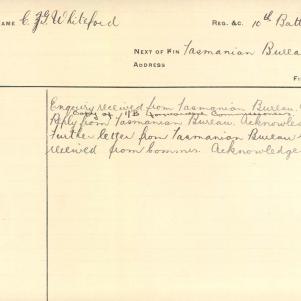 NAME C. G. Whiteford REG. &C. 10th Batt
NEXT OF KIN Tasmanian Bureau
ADDRESS
Enquiry received from Tasmanian Bureau.
Copy of
Reply from Tasmanian Bureau. Acknowled
Further letter from Tasmanian Bureau
received from Commrs. Acknowledge